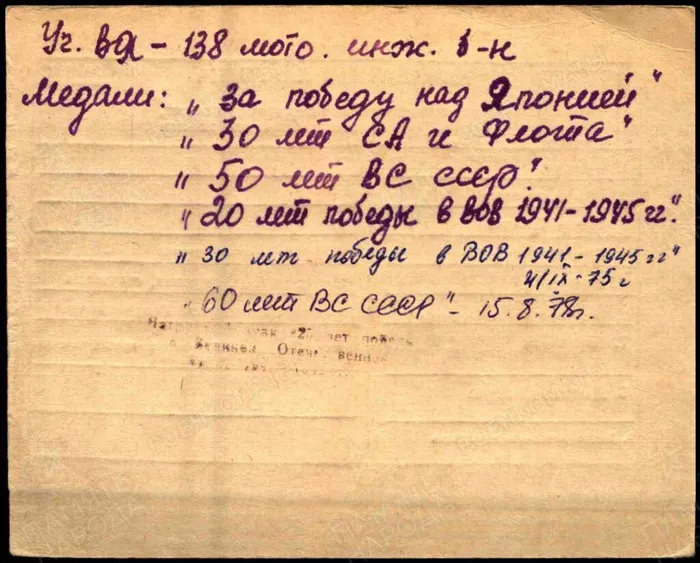 Уч. ВОв – 138 мото. инж. б-н
Медали: „За победу над Японией"
„30 лет СА и Флота"
„50 лет ВС СССР".
„20 лет победы в ВОВ 1941–1945 гг."
„30 лет победы в ВОВ 1941–1945 гг"
4/IX-75 г
„60 лет ВС СССР" – 15.8.78г.
знак "2 лет побе
Великой Отечественной
ПАМЯТЬ НАРОДА